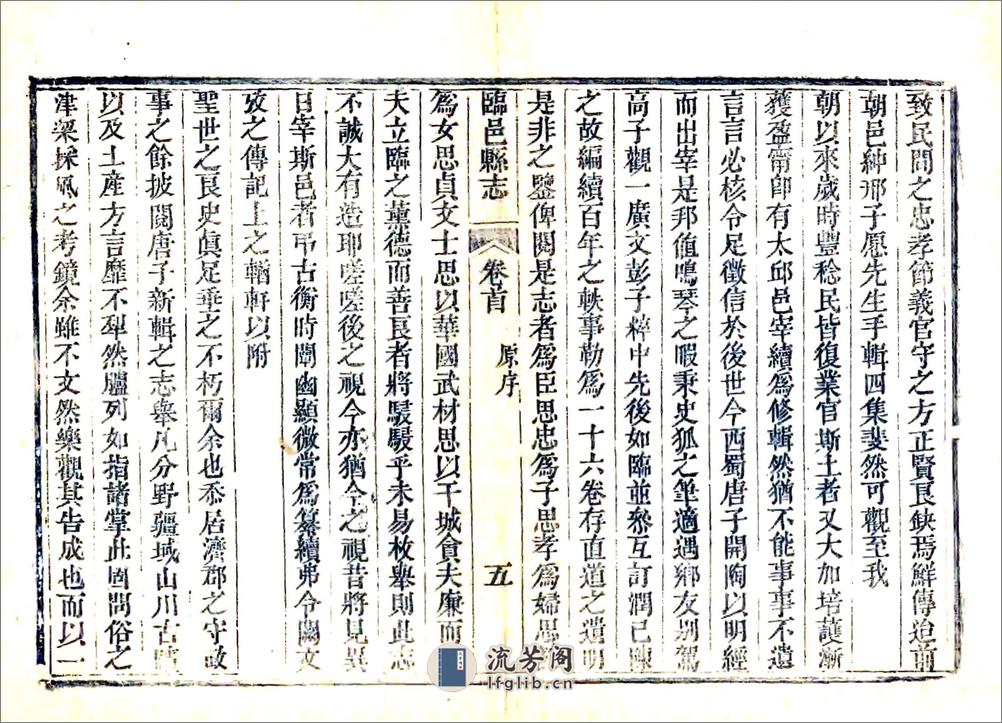 致民間之忠孝節義官守之方正賢良缺焉鮮傳迨前
朝邑紳邢子愿先生手輯四集斐然可觀至我
朝以來歲時豐稔民皆復業官斯土者又大加培護漸
獲盈甯即有太邱邑宰續爲修輯然猶不能事事不遺
言言必核令足徵信於後世今西蜀唐子開陶以明經
而出宰是邦値鳴琴之暇秉史狐之筆適遇鄉友別駕
高子觀一廣文彭子粹中先後如臨並參互訂潤已陳
之故編續百年之軼事勒爲一十六卷存直道之遺明
是非之鑒俾閱是志者爲臣思忠爲子思孝爲婦思
臨邑縣志 卷首 原序 五
爲女思貞文士思以華國武材思以干城貪夫廉而
夫立臨之薰德而善良者將駸駸乎未易枚舉則此志
不誠大有造耶嗟嗟後之視今亦猶今之視昔將見異
日宰斯邑者弔古衡時闡幽顯微常爲纂續弗令闕文
攷之傳記上之輶軒以附
聖世之良史眞足垂之不朽爾余也忝居濟郡之守政
事之餘披閱唐子新輯之志舉凡分野疆域山川古蹟
以及土產方言靡不犁然臚列如指諸掌此固問俗之
津梁採風之考鏡余雖不文然樂觀其告成也而以一
流芳阁
lfglib.cn